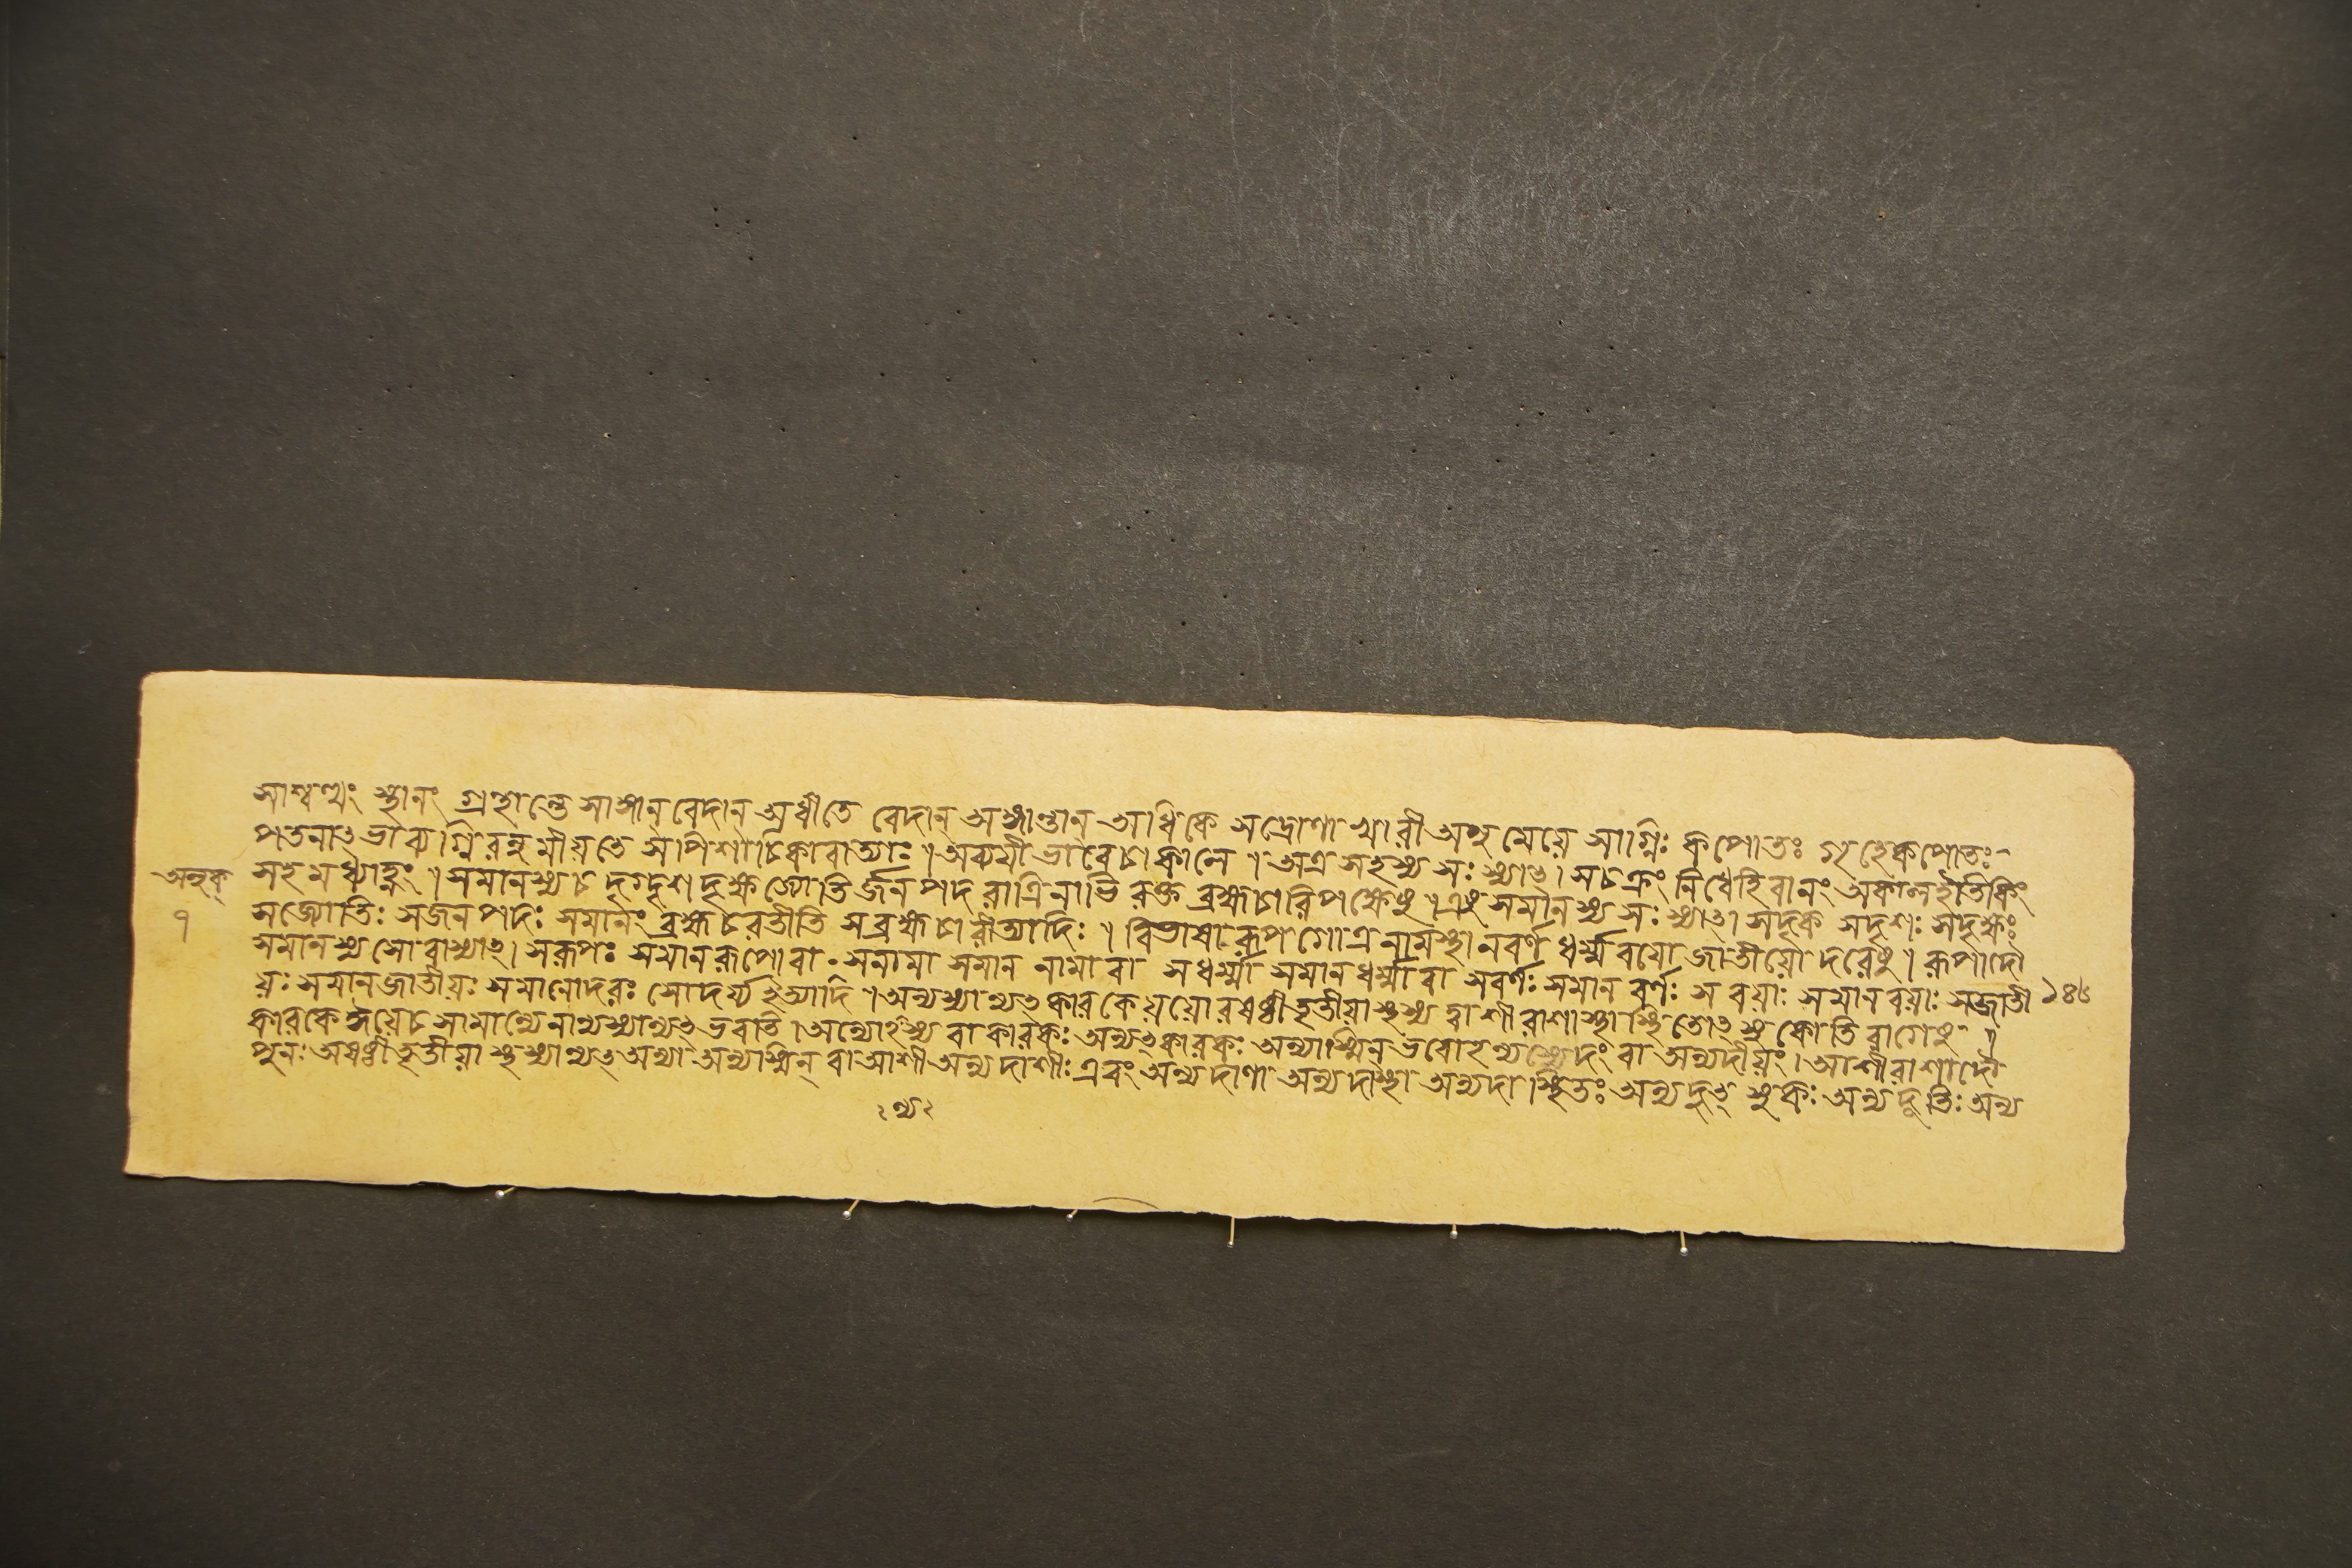 সাশ্বত্থং স্থানং গ্রন্থান্তে সাঙ্গান বেদান অধীতে বেদান্ অঙ্গান্তান অধিকে সদ্রোণা খারী অনুমেয়ে সাগ্নিঃ কপোতঃ গৃহেকপোতঃ
পতনাৎভাব্যগ্নিরনুমীয়তে সপিশাচিকাবাত্যাঃ। অব্যয়ীভাবেচাকালে। অত্র সহস্য সঃ স্যাৎ। সচক্রং নিধেহিবানং অকালইতিকিং
সহমধ্যাহ্নং। সমানস্য চ দৃগ্দৃশদৃক্ষজ্যোতির্জনপদরাত্রিনাভিরক্তব্রহ্মচারিপক্ষেষু। এষু সমানস্য সঃ স্যাৎ। সদৃক সদৃশঃ সদৃক্ষঃ
সজ্যোতিঃ সজনপদঃ সমানং ব্রহ্মচরতীতি সব্রহ্মচারীত্যাদিঃ। বিভাষা রূপগোত্রনামস্থানবর্ণধর্ম্মবয়োজাতীয়োদরেষু। রূপাদৌ
সমানস্য সো বাস্যাৎ। সরূপঃ সমানরূপোবা. সনামা সমান নামা বা সধর্ম্মা সমানধর্ম্মা বা সবর্ণঃ সমান বর্ণঃ সবয়াঃ সমানবয়াঃ সজাতী
য়ঃ সমানজাতীয়ঃ সমানোদরঃ সোদর্য্য ইত্যাদি। অন্যস্যান্যৎকারকেয়য়োরষষ্ঠীতৃতীয়াস্তস্য ত্বাশীরাশাস্থাস্থিতোৎসুকোতিরাগেষু।
কারকেঈয়েচ সামান্যেনান্যস্যান্যৎ ভবতি। অন্যোঽস্য বা কারকঃ অন্যৎকারকঃ অন্যাস্মিন্ ভবোঽন্যস্যেদং বা অন্যদীয়ং। আশীরাশাদৌ
পুনঃ অষষ্ঠীতৃতীয়াস্তস্যান্যৎ অন্যা অন্যাস্মিন্ বা আশী অন্যদাশীঃ এবং অন্যদাশা অন্যদাস্থা অন্যদাস্থিতঃ অন্যদুৎসুকঃ অন্যদূতিঃ অন্য
১৪৮